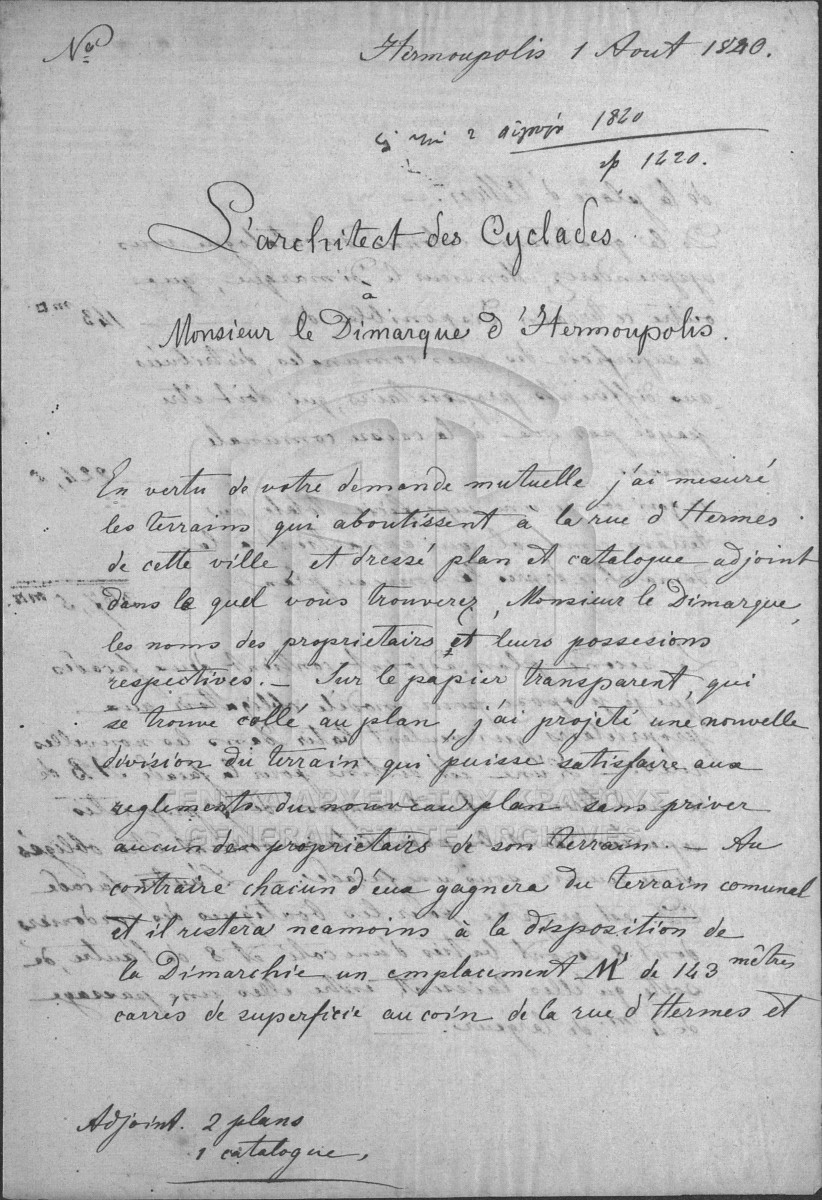 No
Hermoupolis 1 Aout 1840.
2 1840
1220.
L'architect des Cyclades.
à
Monsieur le Dimarque d'Hermoupolis.
En vertu de votre demande mutuelle j'ai mesuré
les terrains qui aboutissent à la rue d'Hermes
de cette ville, et dressé plan et catalogue adjoint
dans le quel vous trouverez, Monsieur le Dimarque,
les noms des proprietairs et leurs possesions
respectives. – Sur le papier transparent, qui
se trouve collé au plan, j'ai projeté une nouvelle
division du terrain qui puisse satisfaire aux
reglements du nouveau plan sans priver
aucun des proprietairs de son terrain. – Au
contraire chacun d'eux gagnera du terrain comunal
et il restera neamoins à la disposition de
la Dimarchie un emplacement M' de 143 mêtres
carrés de superficie au coin de la rue d'Hermes et
Adjoint. 2 plans
1 catalogue,
ΓΕΝΙΚΑ ΑΡΧΕΙΑ ΤΟΥ ΚΡΑΤΟΥΣ
GENERAL STATE ARCHIVES